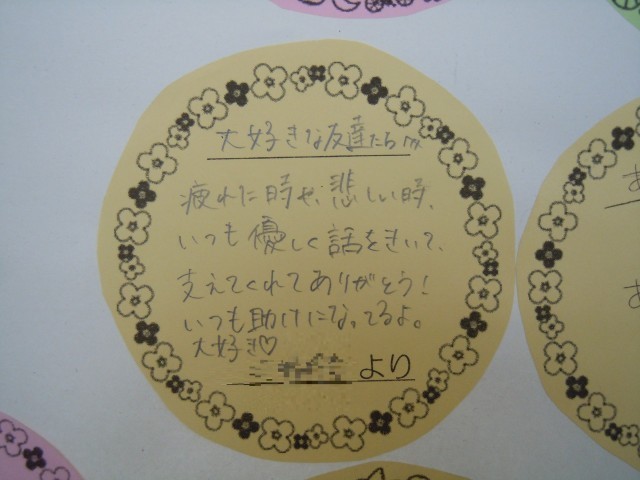 大好きな友達たちへ
疲れた時や、悲しい時、
いつも優しく話をきいて、
支えてくれてありがとう！
いつも助けになってるよ。
大好き♡
より
あ
あ